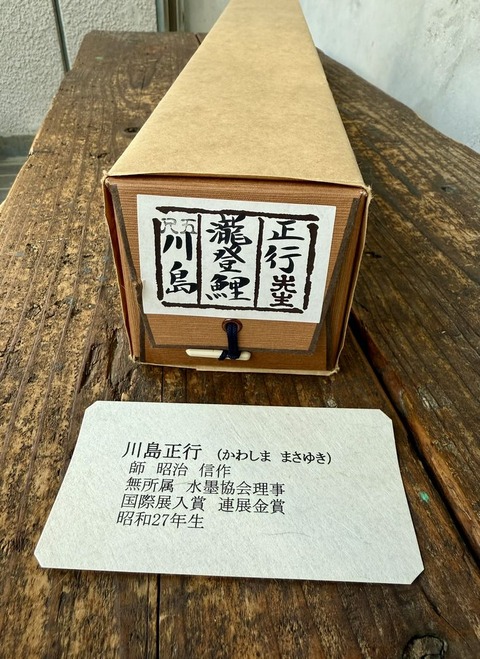 正行先生
瀧登鯉
尺五
川島
川島正行 (かわしま まさゆき)
師 昭治 信作
無所属 水墨協会理事
国際展入賞 連展金賞
昭和27年生